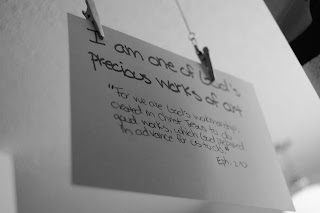 I am one of God's
precious works of art
"For we are God's workmanship,
created in Christ Jesus to do
good works, which God prepared
in advance for us to do."
Eph. 2:10